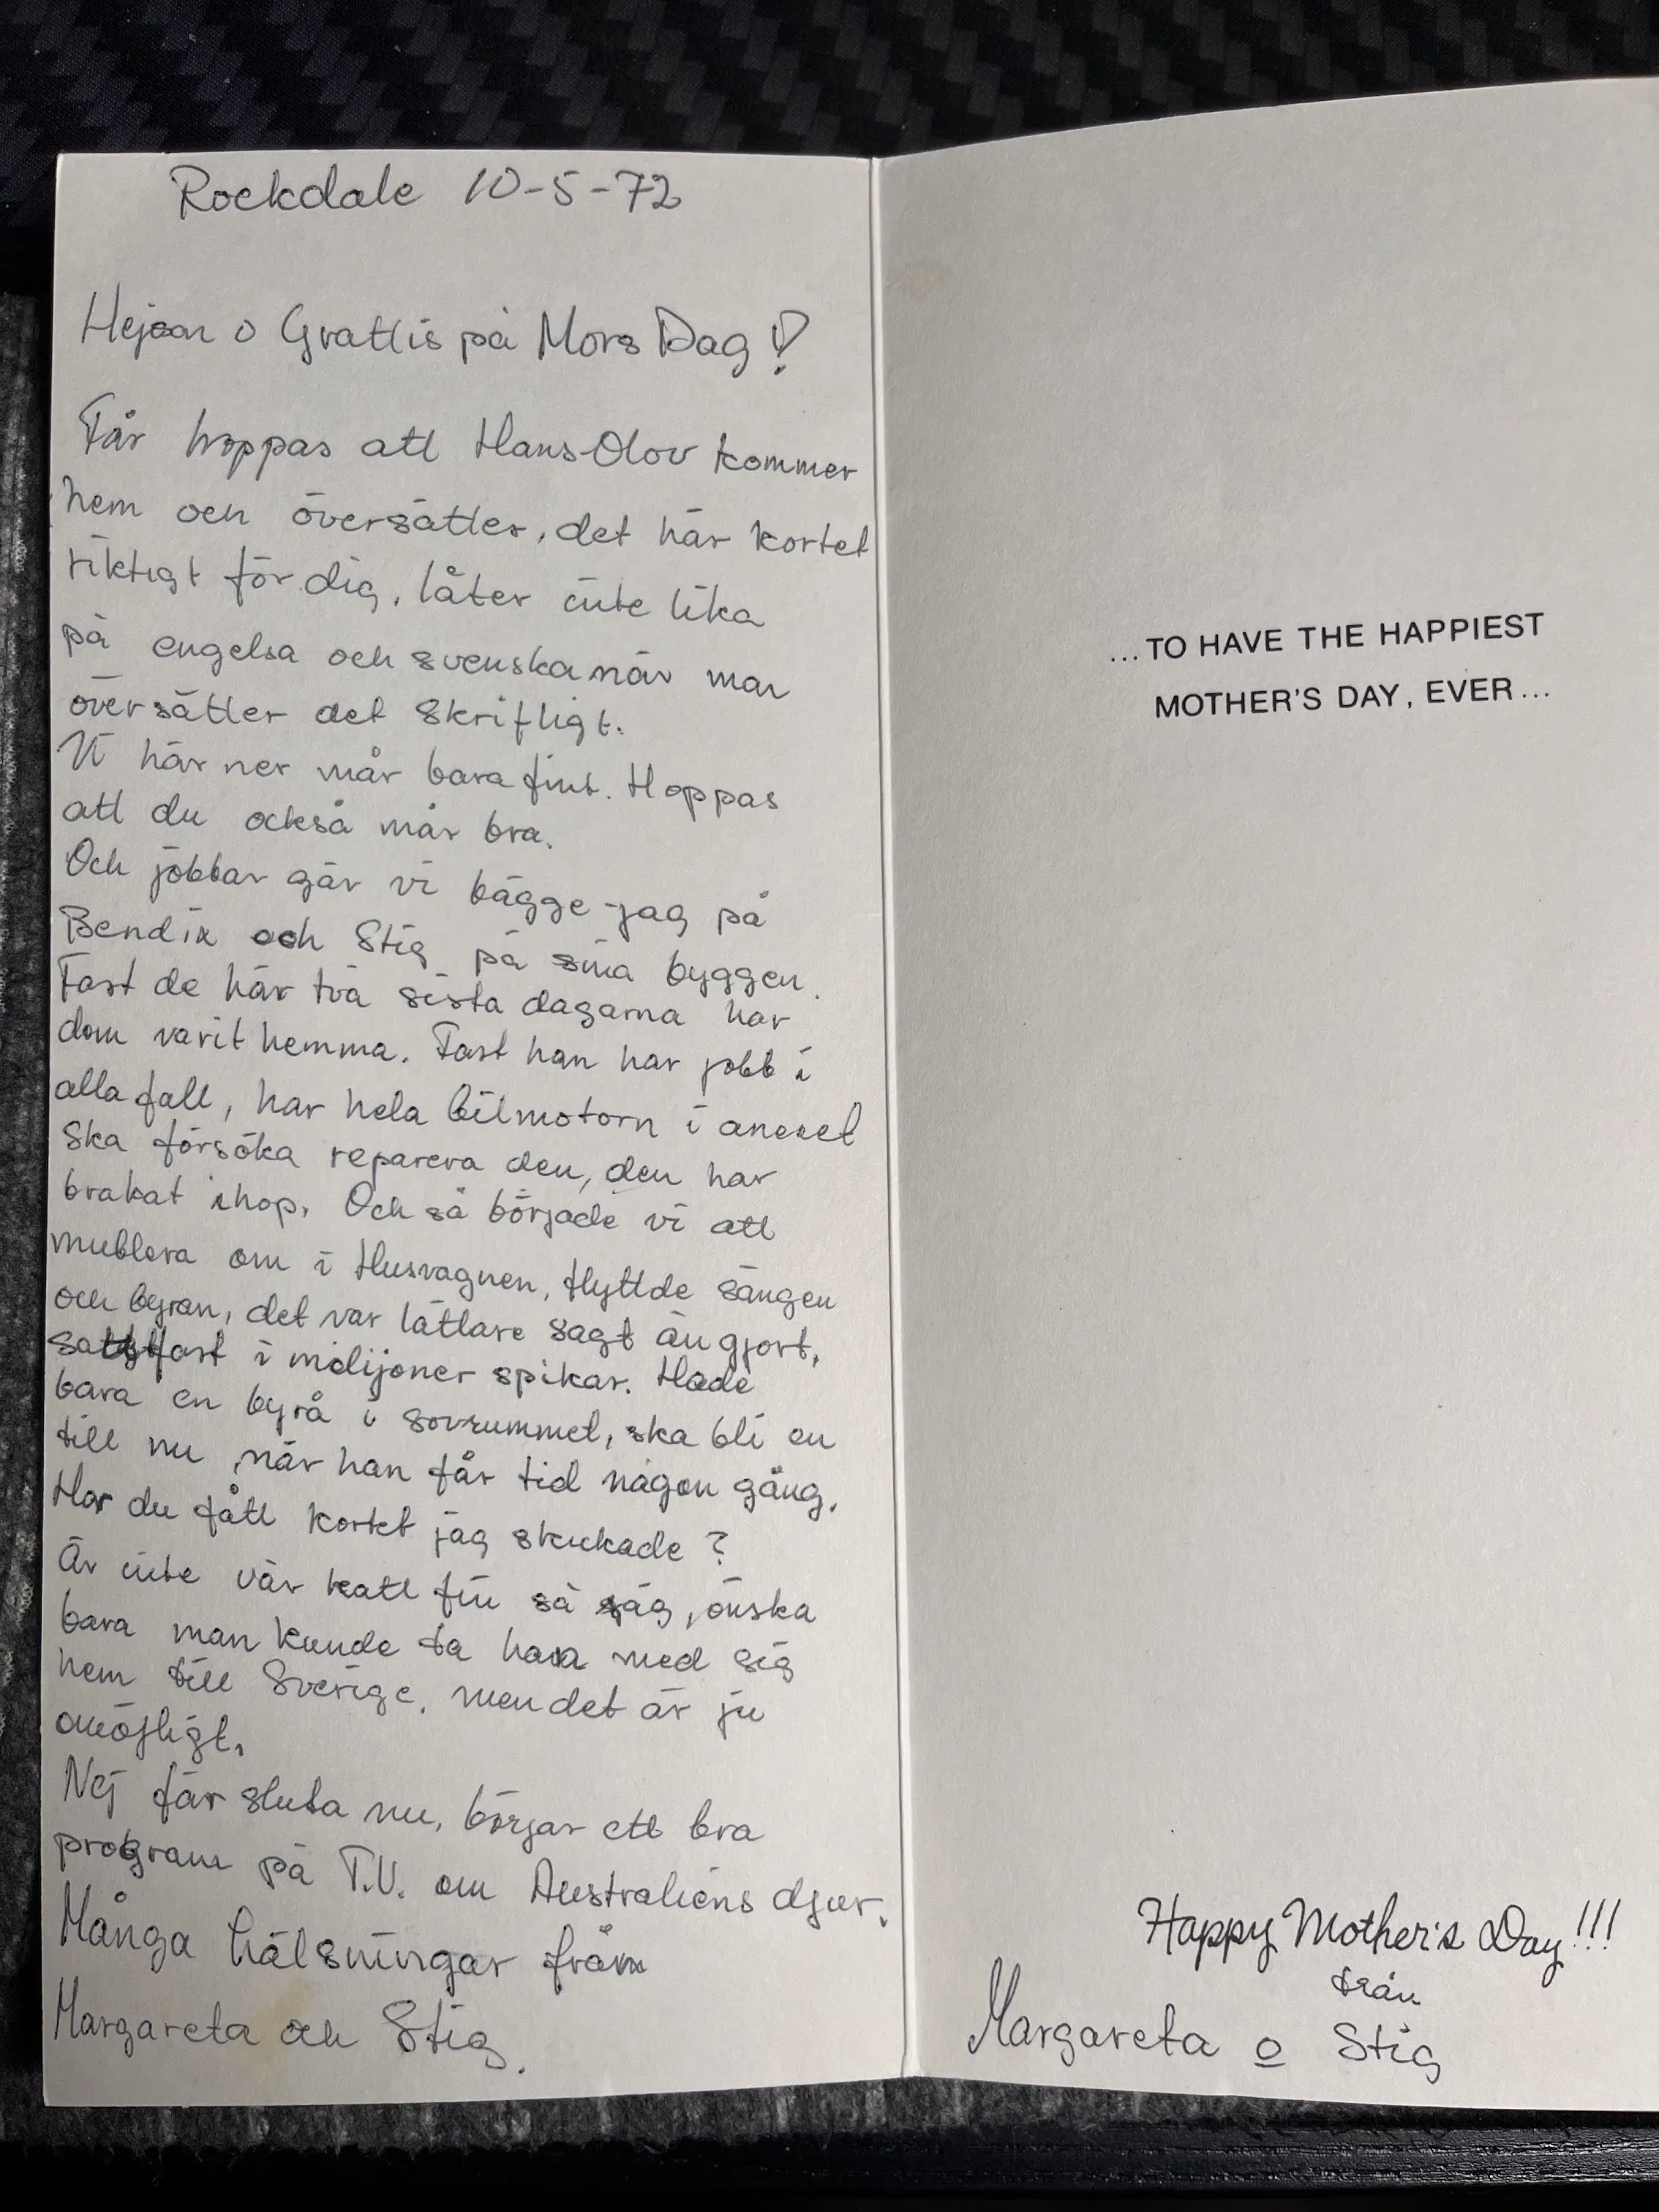 Rockdale 10-5-72
Hejsan o Grattis på Mors Dag!
Får hoppas att Hans-Olov kommer
hem och översätter, det här kortet
riktigt för dig, låter inte lika
på engelsa och svenska när man
översätter det skriftligt.
Vi här ner mår bara fint. Hoppas
att du också mår bra.
Och jobbar gör vi bägge - jag på
Bendix och Stig på sina byggen.
Fast de här två sista dagarna har
dom varit hemma. Fast han har jobb i
alla fall, har hela bilmotorn i anexet
ska försöka reparera den, den har
brakat ihop. Och så började vi att
mublera om i Husvagnen, flyttde sängen
och byrån, det var lättare sagt än gjort,
satt fast i milijoner spikar. Hade
bara en byrå i sovrummet, ska bli en
till nu, när han får tid någon gång.
Har du fått kortet jag skickade?
Är inte vår katt fin så säg, önska
bara man kunde ta hana med sig
hem till Sverige, men det är ju
omöjligt.
Nej får sluta nu, börjar ett bra
program på T.V. om Australiens djur.
Många hälsningar från
Margareta och Stig.
...TO HAVE THE HAPPIEST
MOTHER'S DAY, EVER...
Happy Mother's Day!!!
från
Margareta o Stig